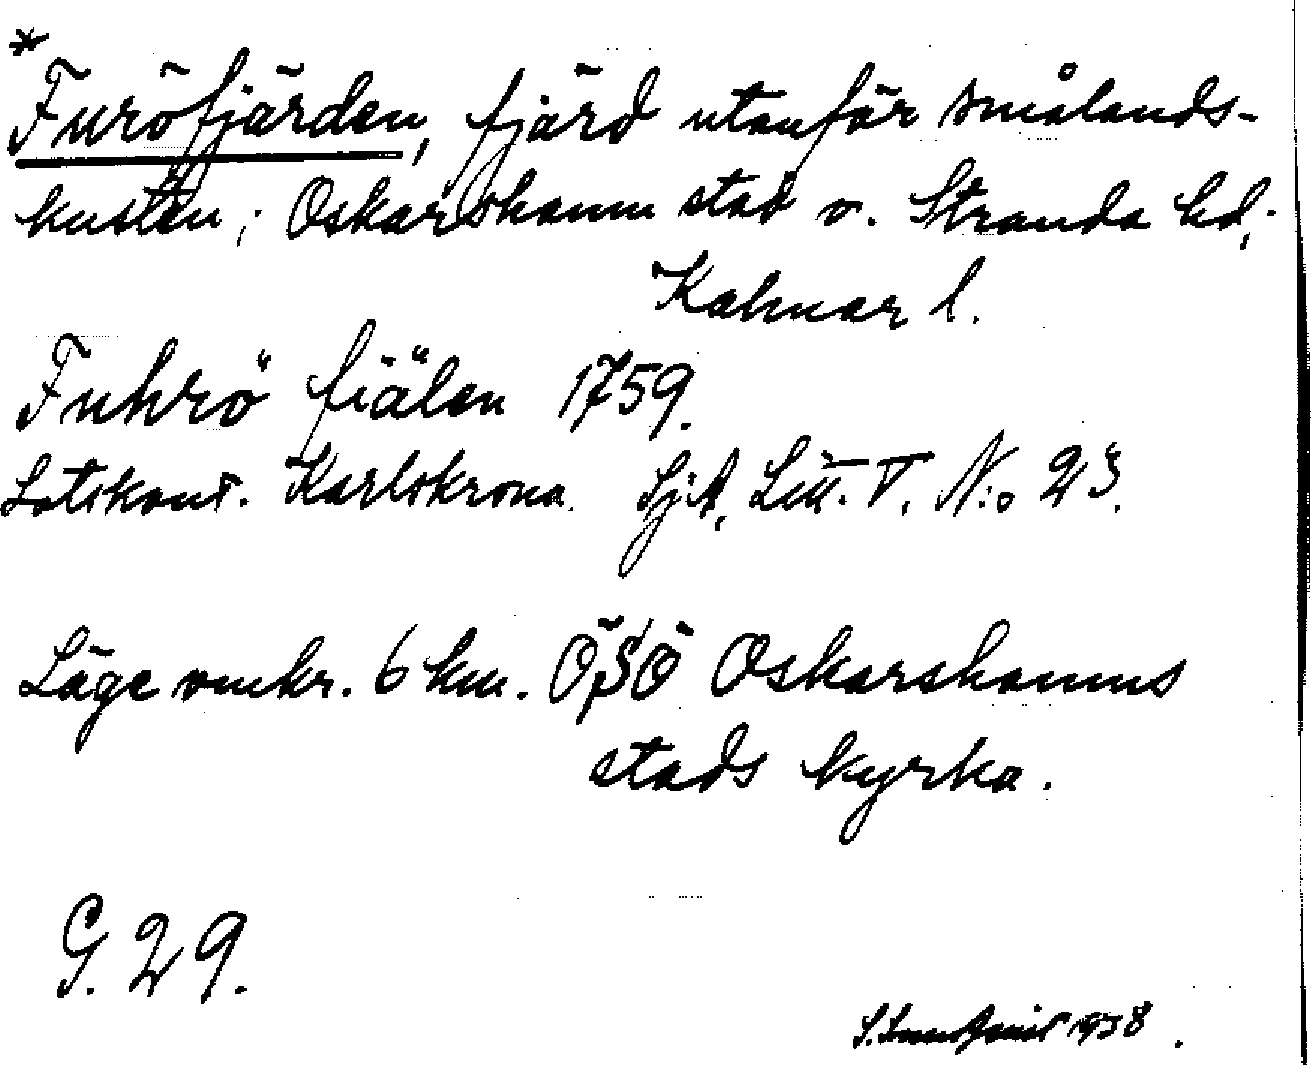 *
Furöfjärden, fjärd utanför smålands-
kusten; Oskarshamn stad o. Stranda hd,
Kalmar l.
Fuhrö fiälen 1759.
Lotskont. Karlskrona. Sj.A, Litt. V. N:o 23.
Läge omkr. 6 km. ÖSÖ Oskarshamns
stads kyrka.
G. 29.
1938.